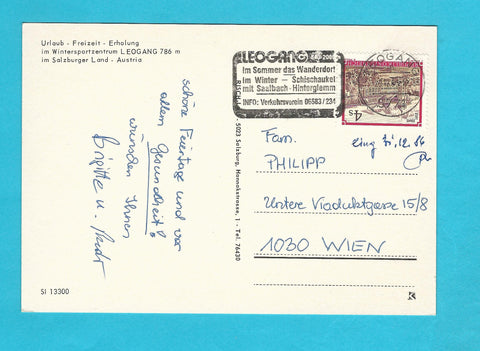 Urlaub - Freizeit - Erholung
im Wintersportzentrum LEOGANG 786 m
im Salzburger Land - Austria
schöne Feiertage und vor
allem Gesundheit!
wünschen Ihnen
Brigitte u.
SI 13300
5023 Salzburg, 1 - Tel. 76430
LEOGANG
Im Sommer das Wanderdorf
im Winter — Schischaukel
mit Saalbach-Hinterglemm
INFO: Verkehrsverein 06583/234
LEOGANG
4s
Fam.
PHILIPP
Untere Viaduktgasse 15/8
1030 WIEN
eing 12.86